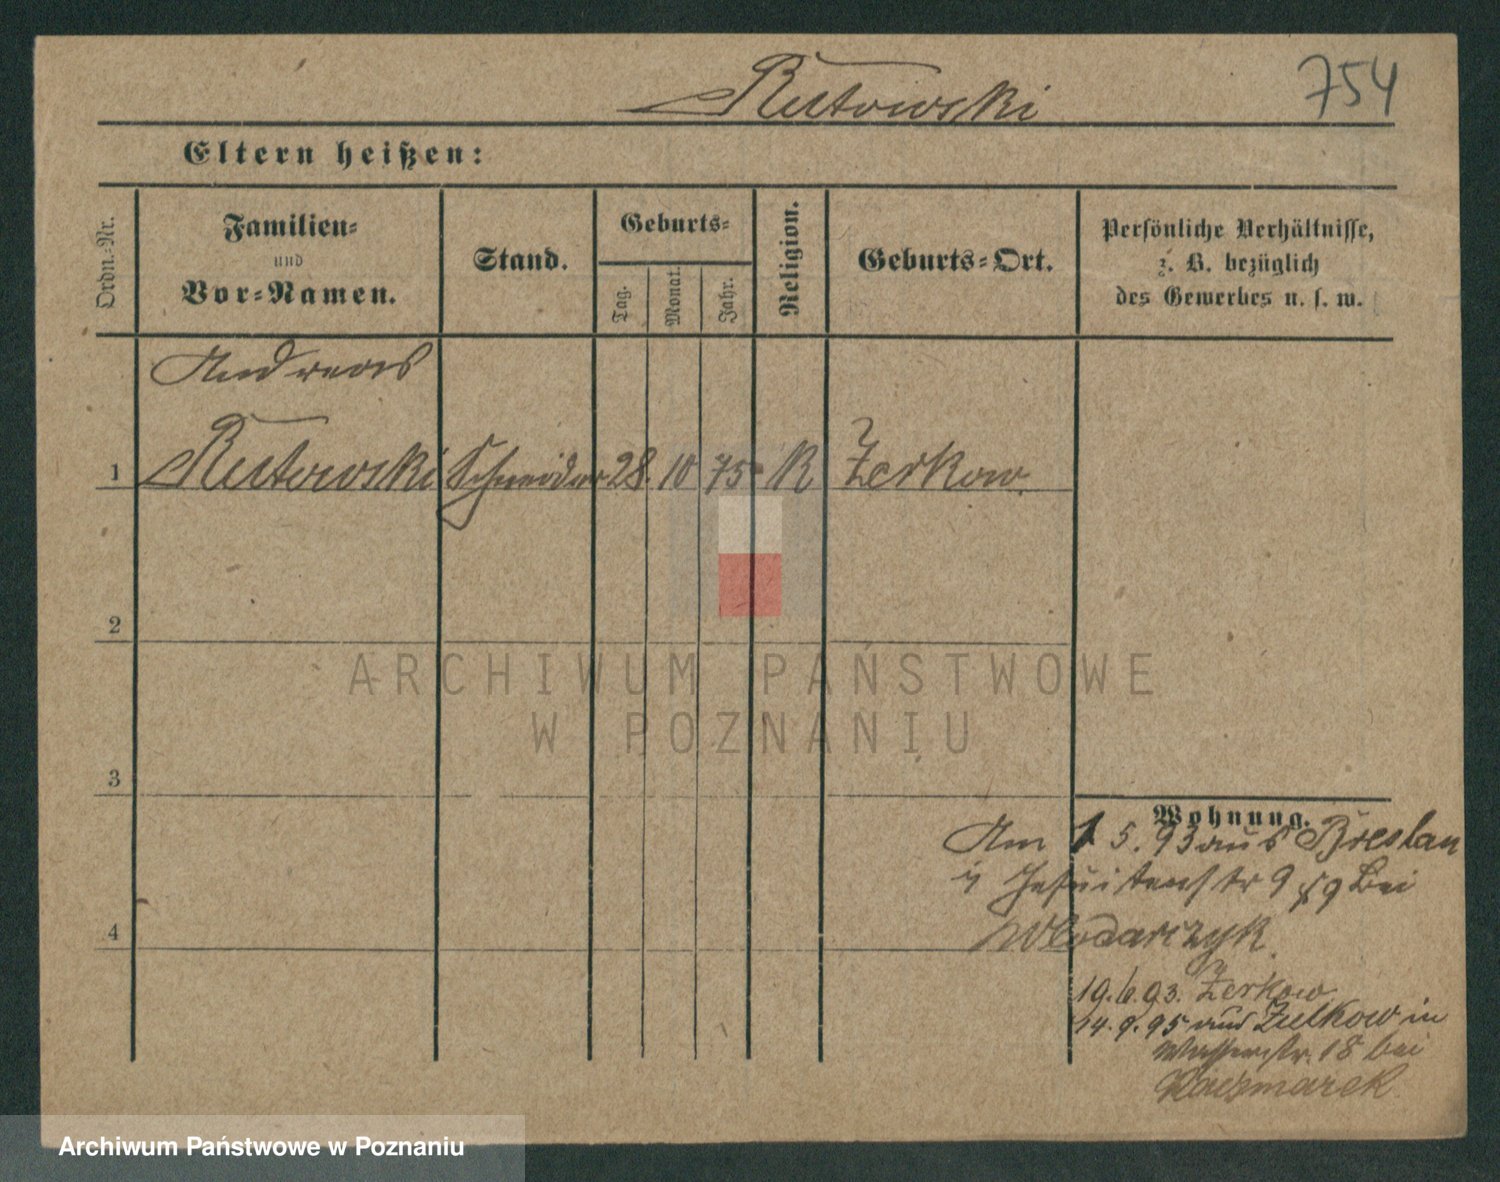 Rutowski
754
Eltern heißen:
Ordn.-Nr.
Familien-
und
Vor-Namen.
Stand.
Geburts-
Tag.
Monat.
Jahr.
Religion.
Geburts-Ort.
Persönliche Verhältnisse,
z. B. bezüglich
des Gewerbes u. s. w.
Andreas
1 Rutowski Schneider 28. 10 75 K Zerkow
2
ARCHIWUM PAŃSTWOWE
W POZNANIU
3
Wohnung.
Am 1 5. 93 aus Breslau
Jesuitenstr 9 bei
Wlodarczyk.
19. 6. 93. Zerkow
4
14. 9. 95 aus Zulkow in
Wasserstr. 18 bei
Kaczmarek.
Archiwum Państwowe w Poznaniu